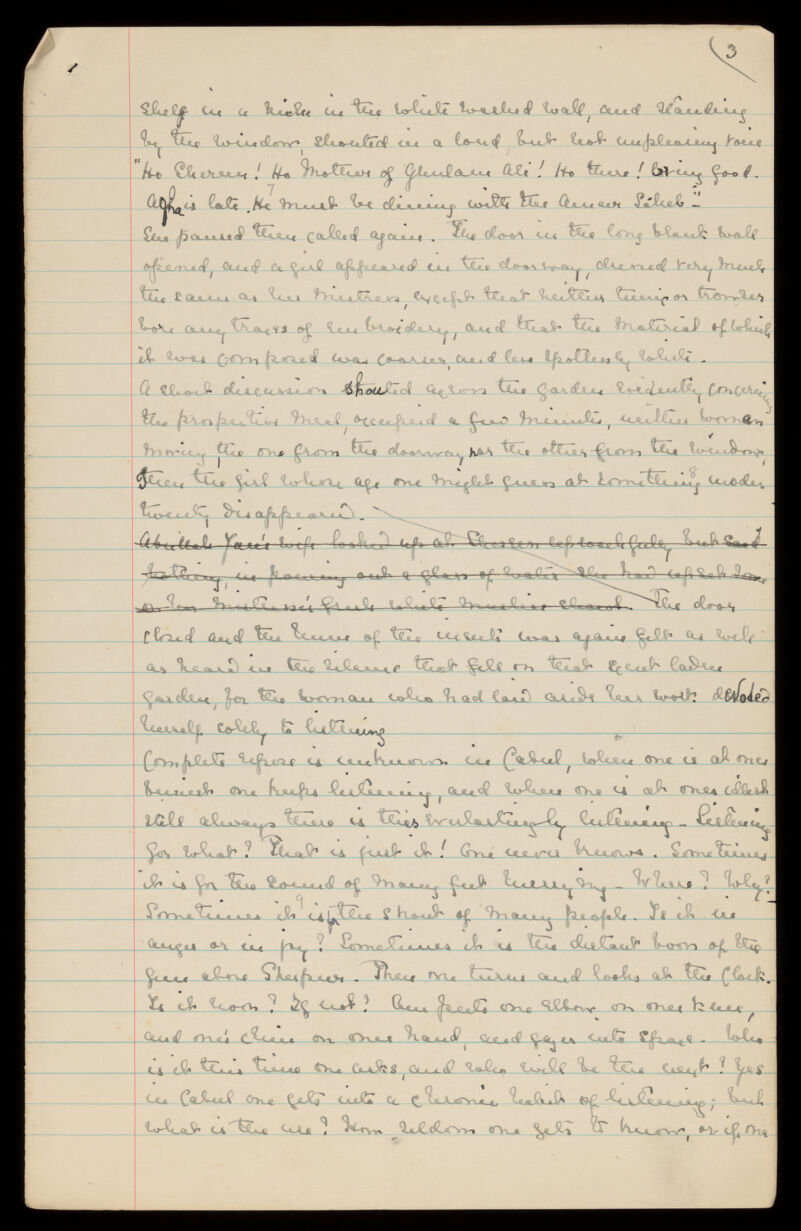 3
shelf in a niche in the white washed wall, and standing
by the window, shouted in a loud, but not unpleasing voice
"Ho Shereen! Ho Mother of Ghulam Ali! Ho there! bring food.
Agha is late. He must be dining with the Ameer Sahib."
She paused then called again. The door in the long blank wall
opened, and a girl appeared in the doorway, dressed very much
the same as her mistress, except that neither tunic or trouser
bore any traces of embroidery, and that the material of which
it was composed was coarser, and less spotlessly white.
A short discussion shouted across the garden evidently concerning
the prospective meal, occupied a few minutes, neither woman
moving, the one from the doorway, nor the other from the window,
then the girl whose age one might guess at something under
twenty disappeared.
wife looked up at Shereen reproachfully but said
nothing, in pouring out a glass of water she had upset some
on her mistress's fresh white muslin The door
closed and the of the insects was again felt as well
as heard in the silence that fell on that scent laden
garden, for the woman who had laid aside her work devoted
herself solely to listening
Complete repose is unknown in Cabul, when one is at ones
busiest one keeps listening, and when one is at ones idlest
still always there is this everlastingly listening - Listening
for what? That is just it! One never knows. Sometimes
it is for the sound of many feet hurrying - Where? Why?
Sometimes it is the shout of many people. Is it in
anger or in joy? Sometimes it is the distant boom of the
gun above Sherpur. Then one turns and looks at the clock.
Is it noon? If not? One puts one elbow on ones knee,
and one's chin on ones hand, and gazes into space. Who
is it this time one asks, and who will be the next? Yes
in Cabul one gets into a chronic habit of listening; but
what is the use? How seldom one gets to know, or if one